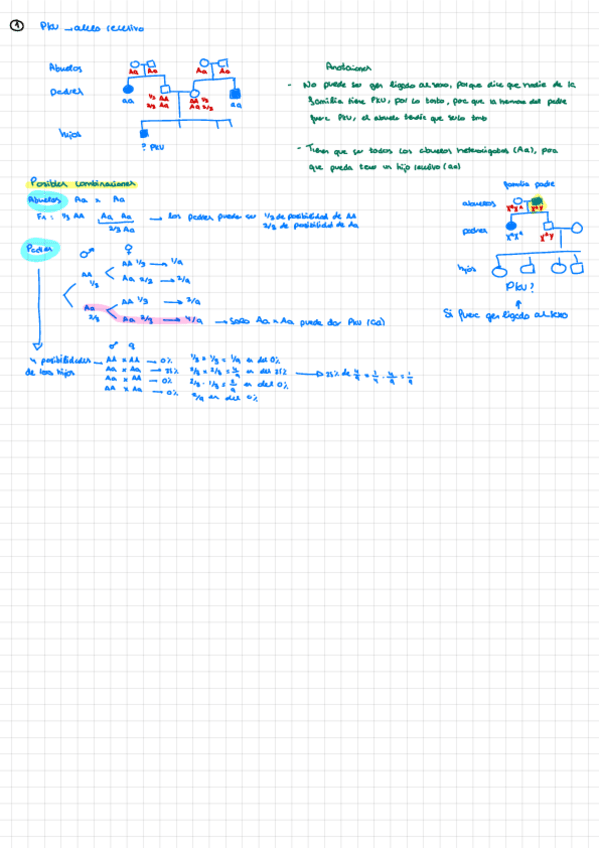 1 PKU → alelo recesivo
Abuelos
Aa Aa Aa Aa
Padres
aa 1/3 AA 2/3 Aa AA 1/3 Aa 2/3 aa
hijos
? PKU
Anotaciones
- No puede ser gen ligado al sexo, porque dice que nadie de la
familia tiene PKU, por lo tanto, para que la hermana del padre
fuera PKU, el abuelo tendría que serlo tmb
- Tienen que ser todos los abuelos heterocigotos (Aa), para
que pueda tener un hijo recesivo (aa)
Posibles combinaciones
Abuelos Aa x Aa
F1: 1/3 AA Aa Aa 2/3 Aa → los padres pueden ser 1/3 de posibilidad de AA
2/3 de posibilidad de Aa
Padres ♂ ♀
AA 1/3
AA 1/3 → 1/9
Aa 2/3 → 2/9
Aa 2/3
AA 1/3 → 2/9
Aa 2/3 → 4/9 → Solo Aa x Aa puede dar PKU (aa)
♂ ♀
4 posibilidades de los hijos
AA x AA → 0% 1/3 x 1/3 = 1/9 en del 0%
Aa x Aa → 25% 2/3 x 2/3 = 4/9 en del 25% → 25% de 4/9 = 1/4 · 4/9 = 1/9
Aa x AA → 0% 2/3 · 1/3 = 2/9 en del 0%
AA x Aa → 0% 2/9 en del 0%
familia padre
abuelos
padres
hijos
PKU?
Si fuera gen ligado al sexo